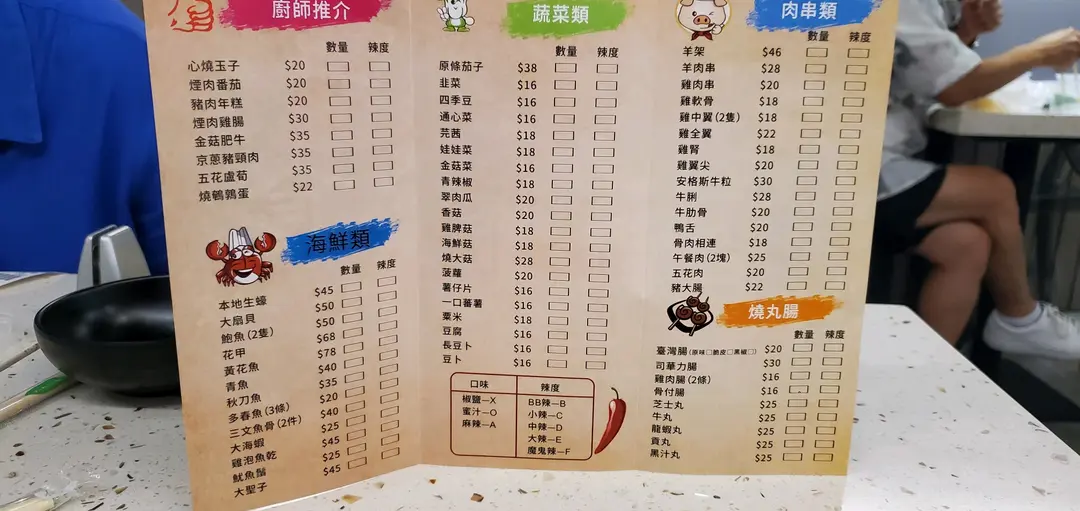 廚師推介
數量 辣度
心燒玉子 $20
煙肉番茄 $20
豬肉年糕 $20
煙肉雞腸 $30
金菇肥牛 $35
京蔥豬頸肉 $35
五花蘆荀 $35
燒鵪鶉蛋 $22
海鮮類
數量 辣度
本地生蠔 $45
大扇貝 $50
鮑魚(2隻) $50
花甲 $68
黃花魚 $78
青魚 $40
秋刀魚 $35
多春魚(3條) $20
三文魚骨(2件) $40
大海蝦 $25
雞泡魚乾 $45
魷魚鬚 $25
大聖子 $45
蔬菜類
數量 辣度
原條茄子 $38
韭菜 $16
四季豆 $16
通心菜 $16
芫茜 $18
娃娃菜 $18
金菇菜 $16
青辣椒 $18
翠肉瓜 $20
香菇 $20
雞脾菇 $18
海鮮菇 $18
燒大菇 $28
菠蘿 $20
薯仔片 $16
一口蕃薯 $16
粟米 $16
豆腐 $16
長豆卜 $16
豆卜 $16
口味 辣度
椒鹽—X BB辣—B
蜜汁—O 小辣—C
麻辣—A 中辣—D
大辣—E
魔鬼辣—F
肉串類
數量 辣度
羊架 $46
羊肉串 $28
雞肉串 $20
雞軟骨 $18
雞中翼(2隻) $18
雞全翼 $22
雞腎 $18
雞翼尖 $20
安格斯牛粒 $30
牛脷 $28
牛肋骨 $20
鴨舌 $20
骨肉相連 $18
午餐肉(2塊) $25
五花肉 $20
豬大腸 $22
燒丸腸
數量 辣度
臺灣腸(原味□脆皮□黑椒□) $20
司華力腸 $30
雞肉腸(2條) $16
骨付腸 $16
芝士丸 $25
牛丸 $25
龍蝦丸 $25
貢丸 $25
黑汁丸 $25